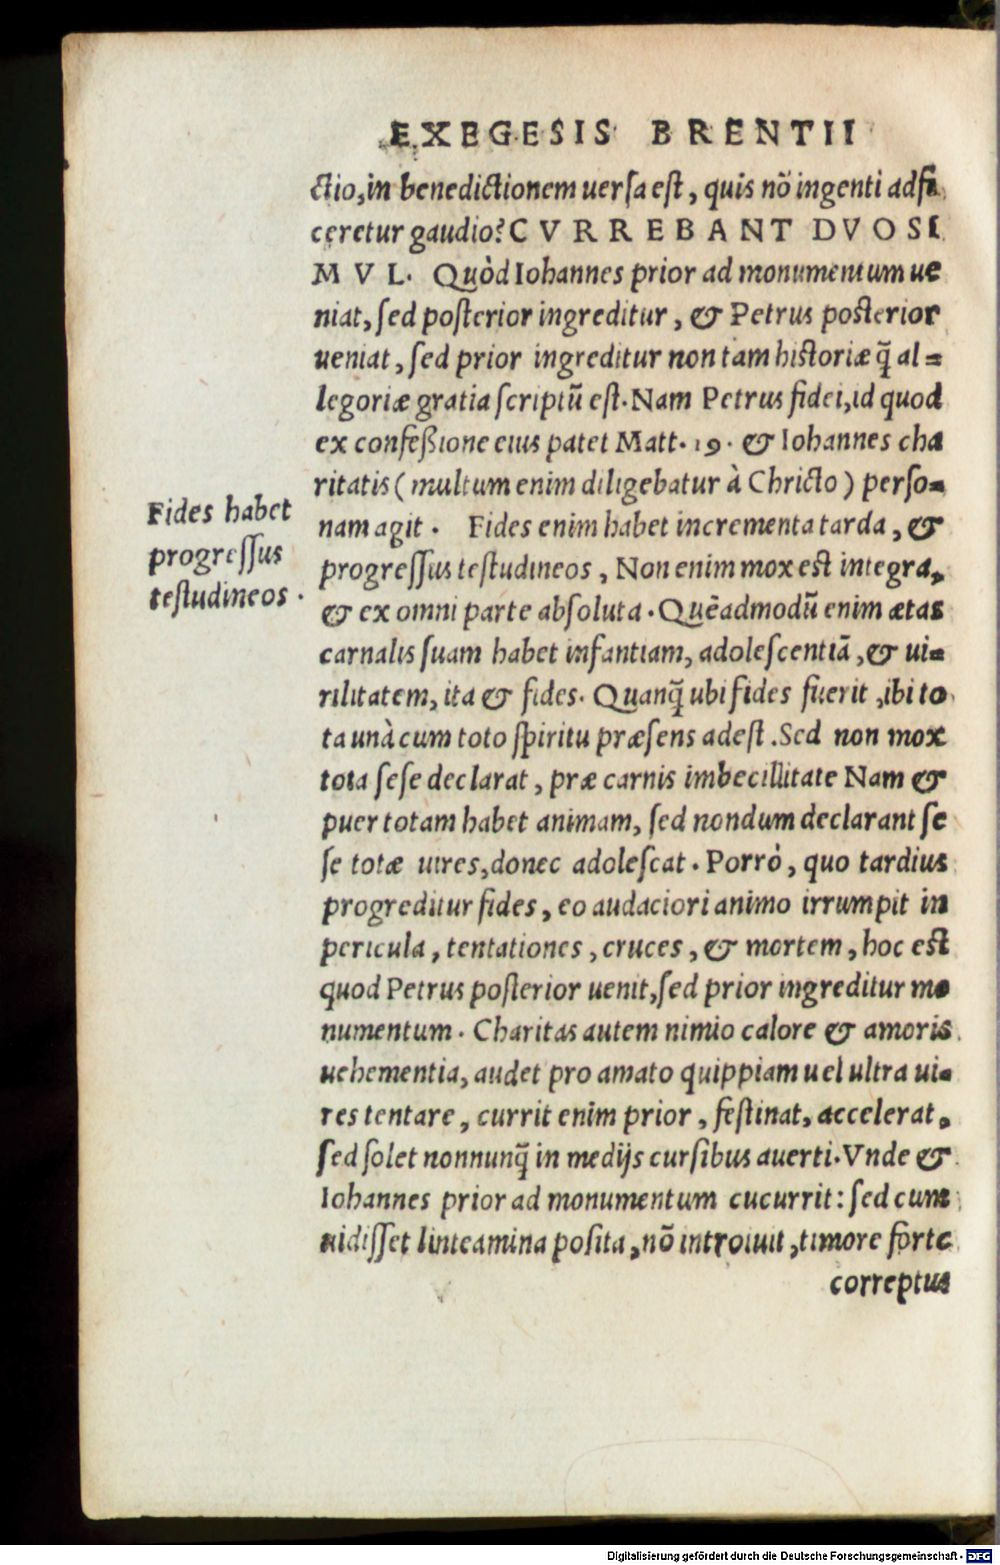 EXEGESIS BRENTII
ctio, in benedictionem uersa est, quis nõ ingenti adfi
ceretur gaudio? CVRREBANT DVO SI
MVL. Quòd Iohannes prior ad monumentum ue
niat, sed posterior ingreditur, & Petrus posterior
ueniat, sed prior ingreditur non tam historiæ q̃ al=
legoriæ gratia scriptũ est. Nam Petrus fidei, id quod
ex confeßione eius patet Matt. 19. & Iohannes cha
ritatis (multum enim diligebatur à Christo) perso=
nam agit. Fides enim habet incrementa tarda, &
progressus testudineos, Non enim mox est integra,
& ex omni parte absoluta. Quẽadmodũ enim ætas
carnalis suam habet infantiam, adolescentiã, & ui=
rilitatem, ita & fides. Quanq̃ ubi fides fuerit, ibi to
ta unà cum toto spiritu præsens adest. Sed non mox
tota sese declarat, præ carnis imbecillitate Nam &
puer totam habet animam, sed nondum declarant se
se totæ uires, donec adolescat. Porrò, quo tardius
progreditur fides, eo audaciori animo irrumpit in
pericula, tentationes, cruces, & mortem, hoc est
quod Petrus posterior uenit, sed prior ingreditur mo
numentum. Charitas autem nimio calore & amoris
uehementia, audet pro amato quippiam uel ultra ui=
res tentare, currit enim prior, festinat, accelerat,
sed solet nonnunq̃ in medijs cursibus auerti. Vnde &
Iohannes prior ad monumentum cucurrit: sed cum
uidisset linteamina posita, nõ introiuit, timore forte
correptus
Fides habet
progressus
testudineos.
Digitalisierung gefördert durch die Deutsche Forschungsgemeinschaft - DFG